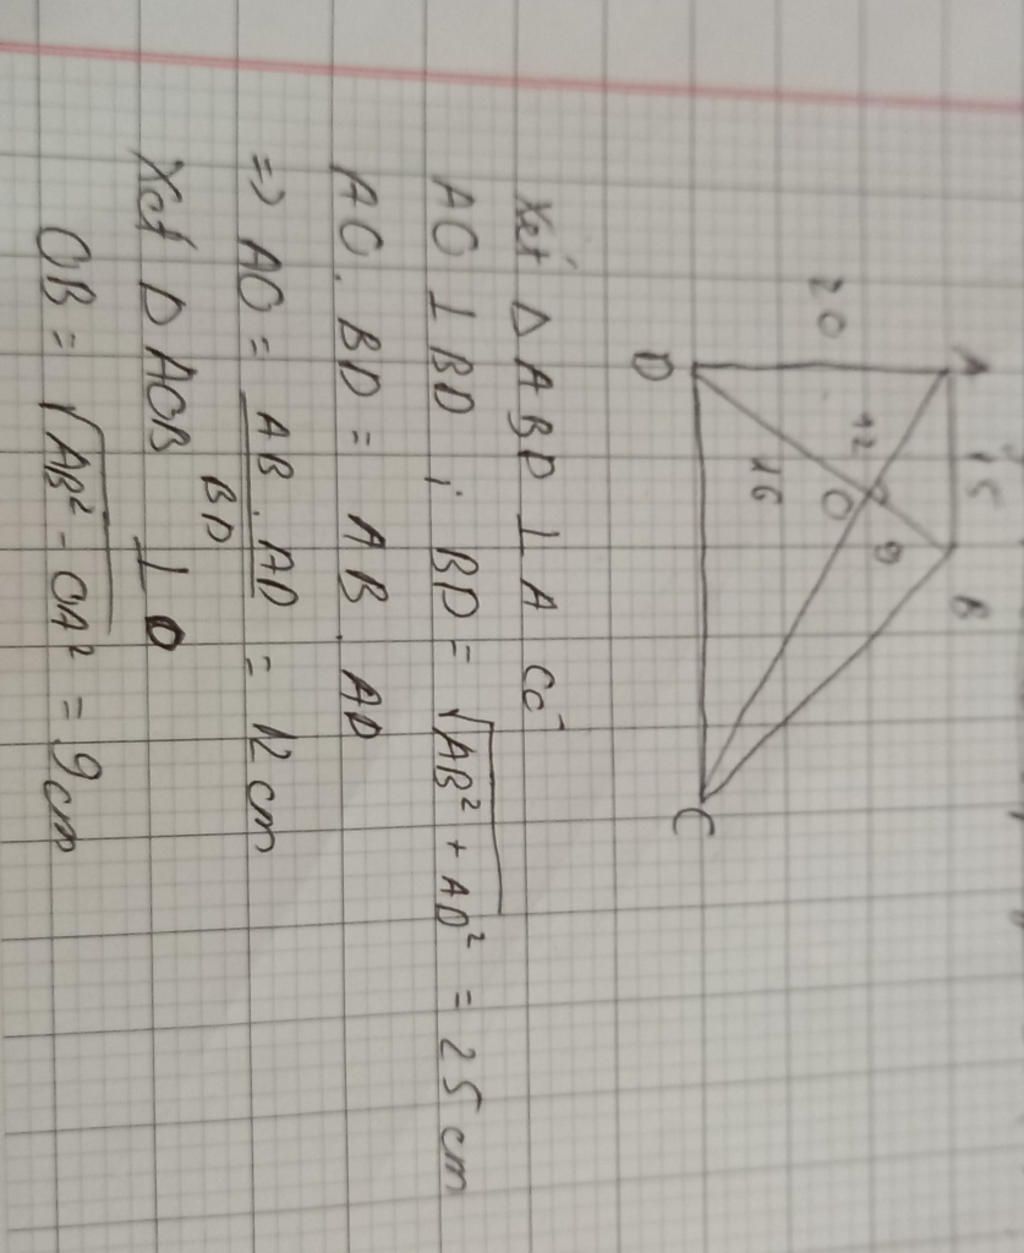 A 15 B
20
12
9
O
16
D
C
Xét Δ ABD ⊥ A Có
AO ⊥ BD ; BD = √AB² + AD² = 25 cm
AO . BD = AB . AD
=> AO = AB . AD / BD = 12 cm
Xét Δ AOB ⊥ O
OB = √AB² - OA² = 9 cm